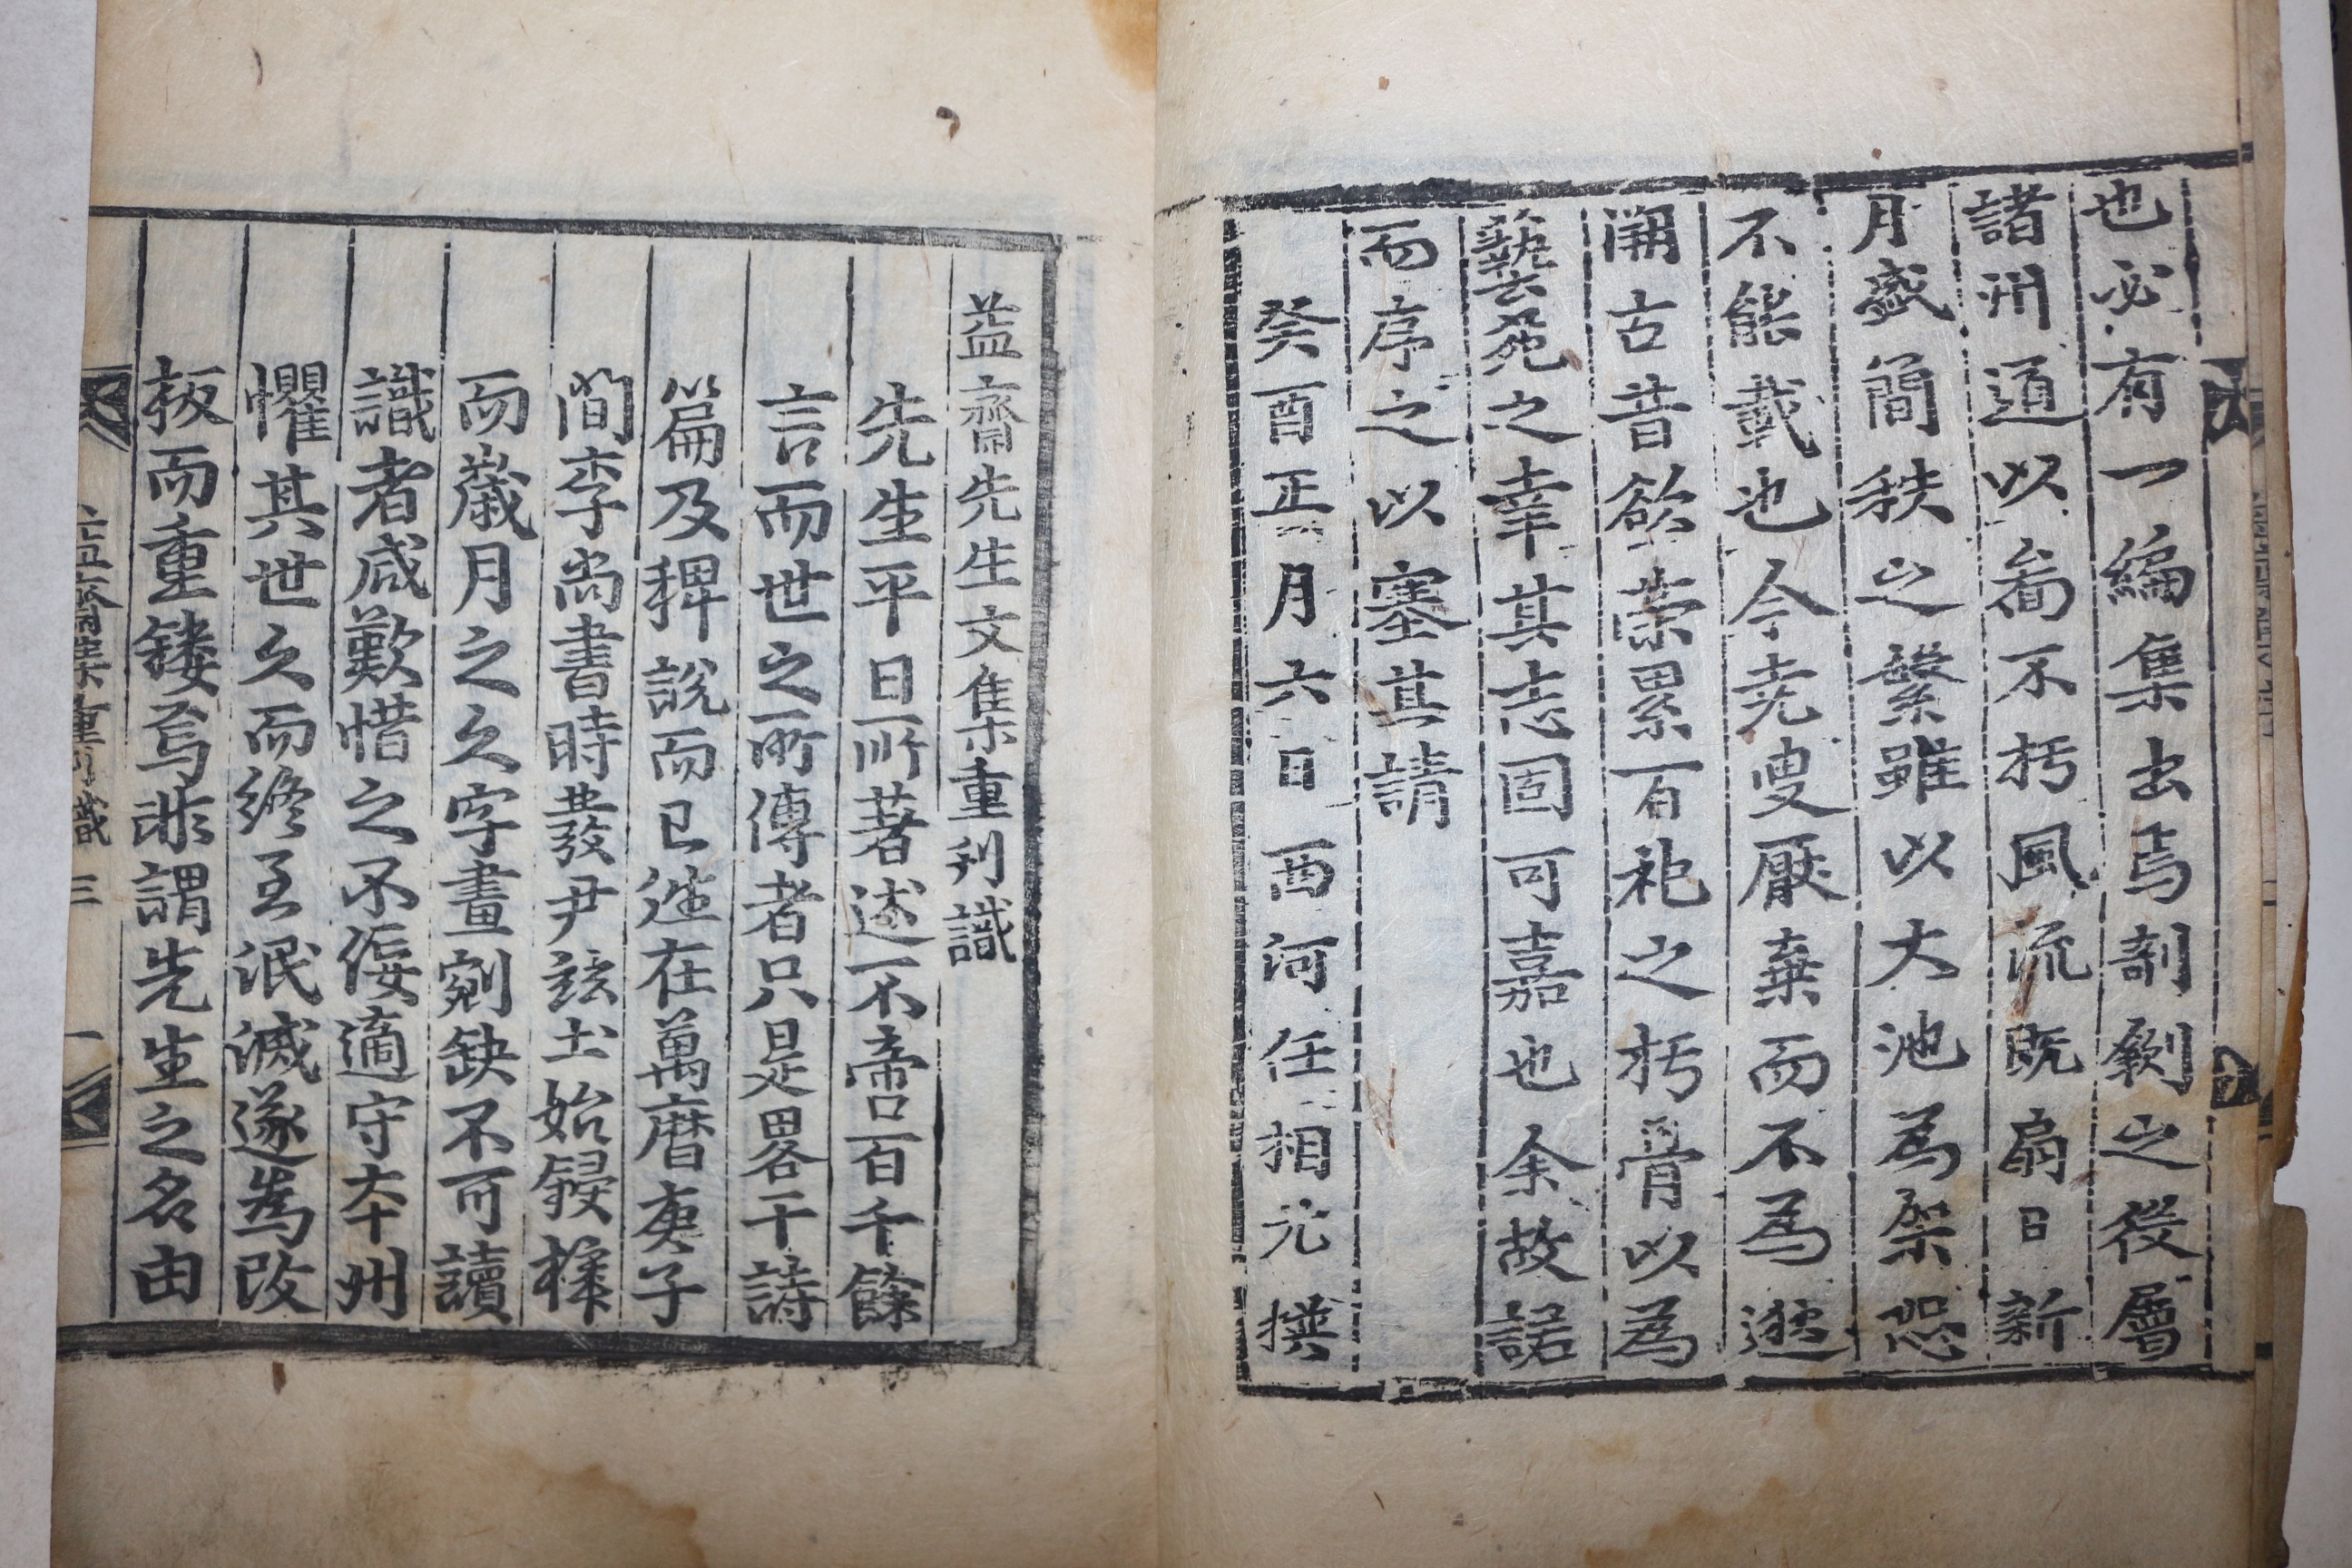 也必有一編集出焉剞劂之役層
諸州道以啚不朽風流旣扇日新
月盛簡秩之繁雖以大池為祭恐
不能載也今堯叟厭棄而不為遊
開古昔欲蒐累百祀之朽骨以為
藝苑之幸其志固可嘉也余故諾
而序之以塞其請
癸酉正月六日西河任相元撰
益齋先生文集重刊識
先生平日所著述不啻百千餘
言而世之所傳者只是畧干詩
篇及稗說而已迆在萬曆庚子
間李尙書時發尹玆土始鋟榟
而歲月之久字畫剜缺不可讀
識者咸歎惜之不佞適守本州
懼其世久而終至泯滅遂為改
板而重鏤焉非謂先生之名由
益齋集重刊識 三 一